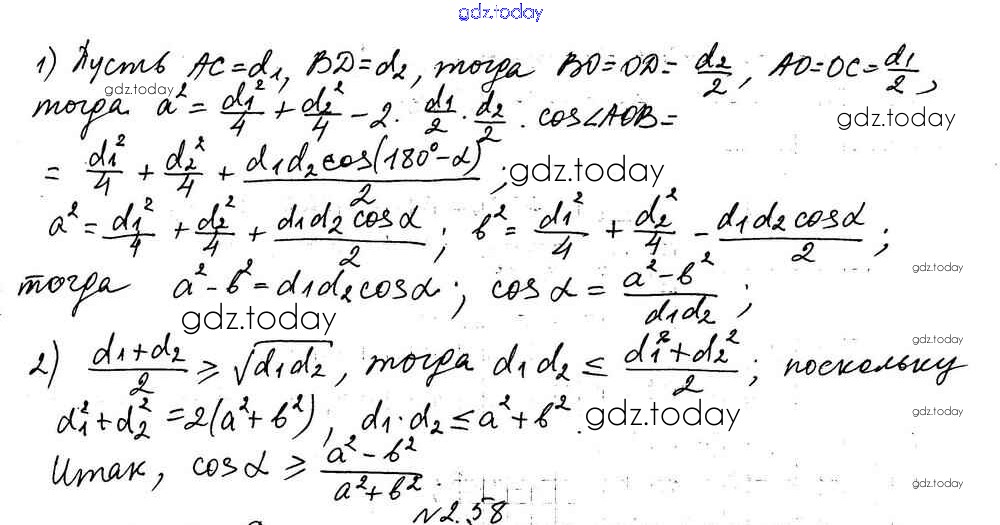 gdz.today
1) Пусть AC=d₁, BD=d₂, тогда BO=OD= d₂/2, AO=OC= d₁/2,
gdz.today
тогда a² = d₁²/4 + d₂²/4 - 2 · d₁/2 · d₂/2 · cos∠AOB =
gdz.today
= d₁²/4 + d₂²/4 + d₁d₂cos(180°-α)/2 ;
gdz.today
a² = d₁²/4 + d₂²/4 + d₁d₂cosα/2 ; b² = d₁²/4 + d₂²/4 - d₁d₂cosα/2 ;
gdz.today
тогда a²-b²=d₁d₂cosα; cosα = a²-b²/d₁d₂ ;
gdz.today
2) d₁+d₂/2 ≥ √d₁d₂, тогда d₁d₂ ≤ d₁²+d₂²/2 ; поскольку
gdz.today
d₁²+d₂²=2(a²+b²), d₁·d₂≤a²+b².
gdz.today
gdz.today
Итак, cosα ≥ a²-b²/a²+b².
gdz.today
N2.58